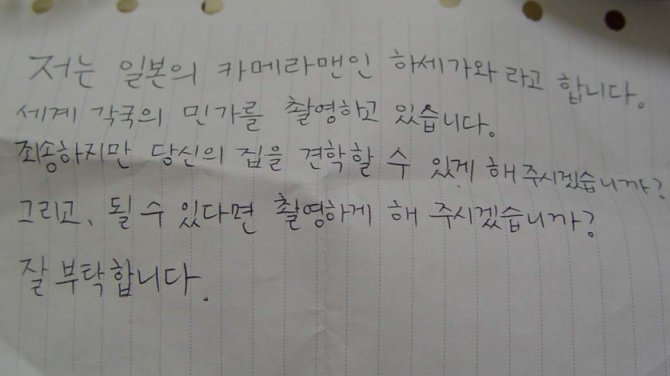 저는 일본의 카메라맨인 하세가와 라고 합니다.
세계 각국의 민가를 촬영하고 있습니다.
죄송하지만 당신의 집을 견학할 수 있게 해 주시겠습니까?
그리고, 될 수 있다면 촬영하게 해 주시겠습니까?
잘 부탁합니다.